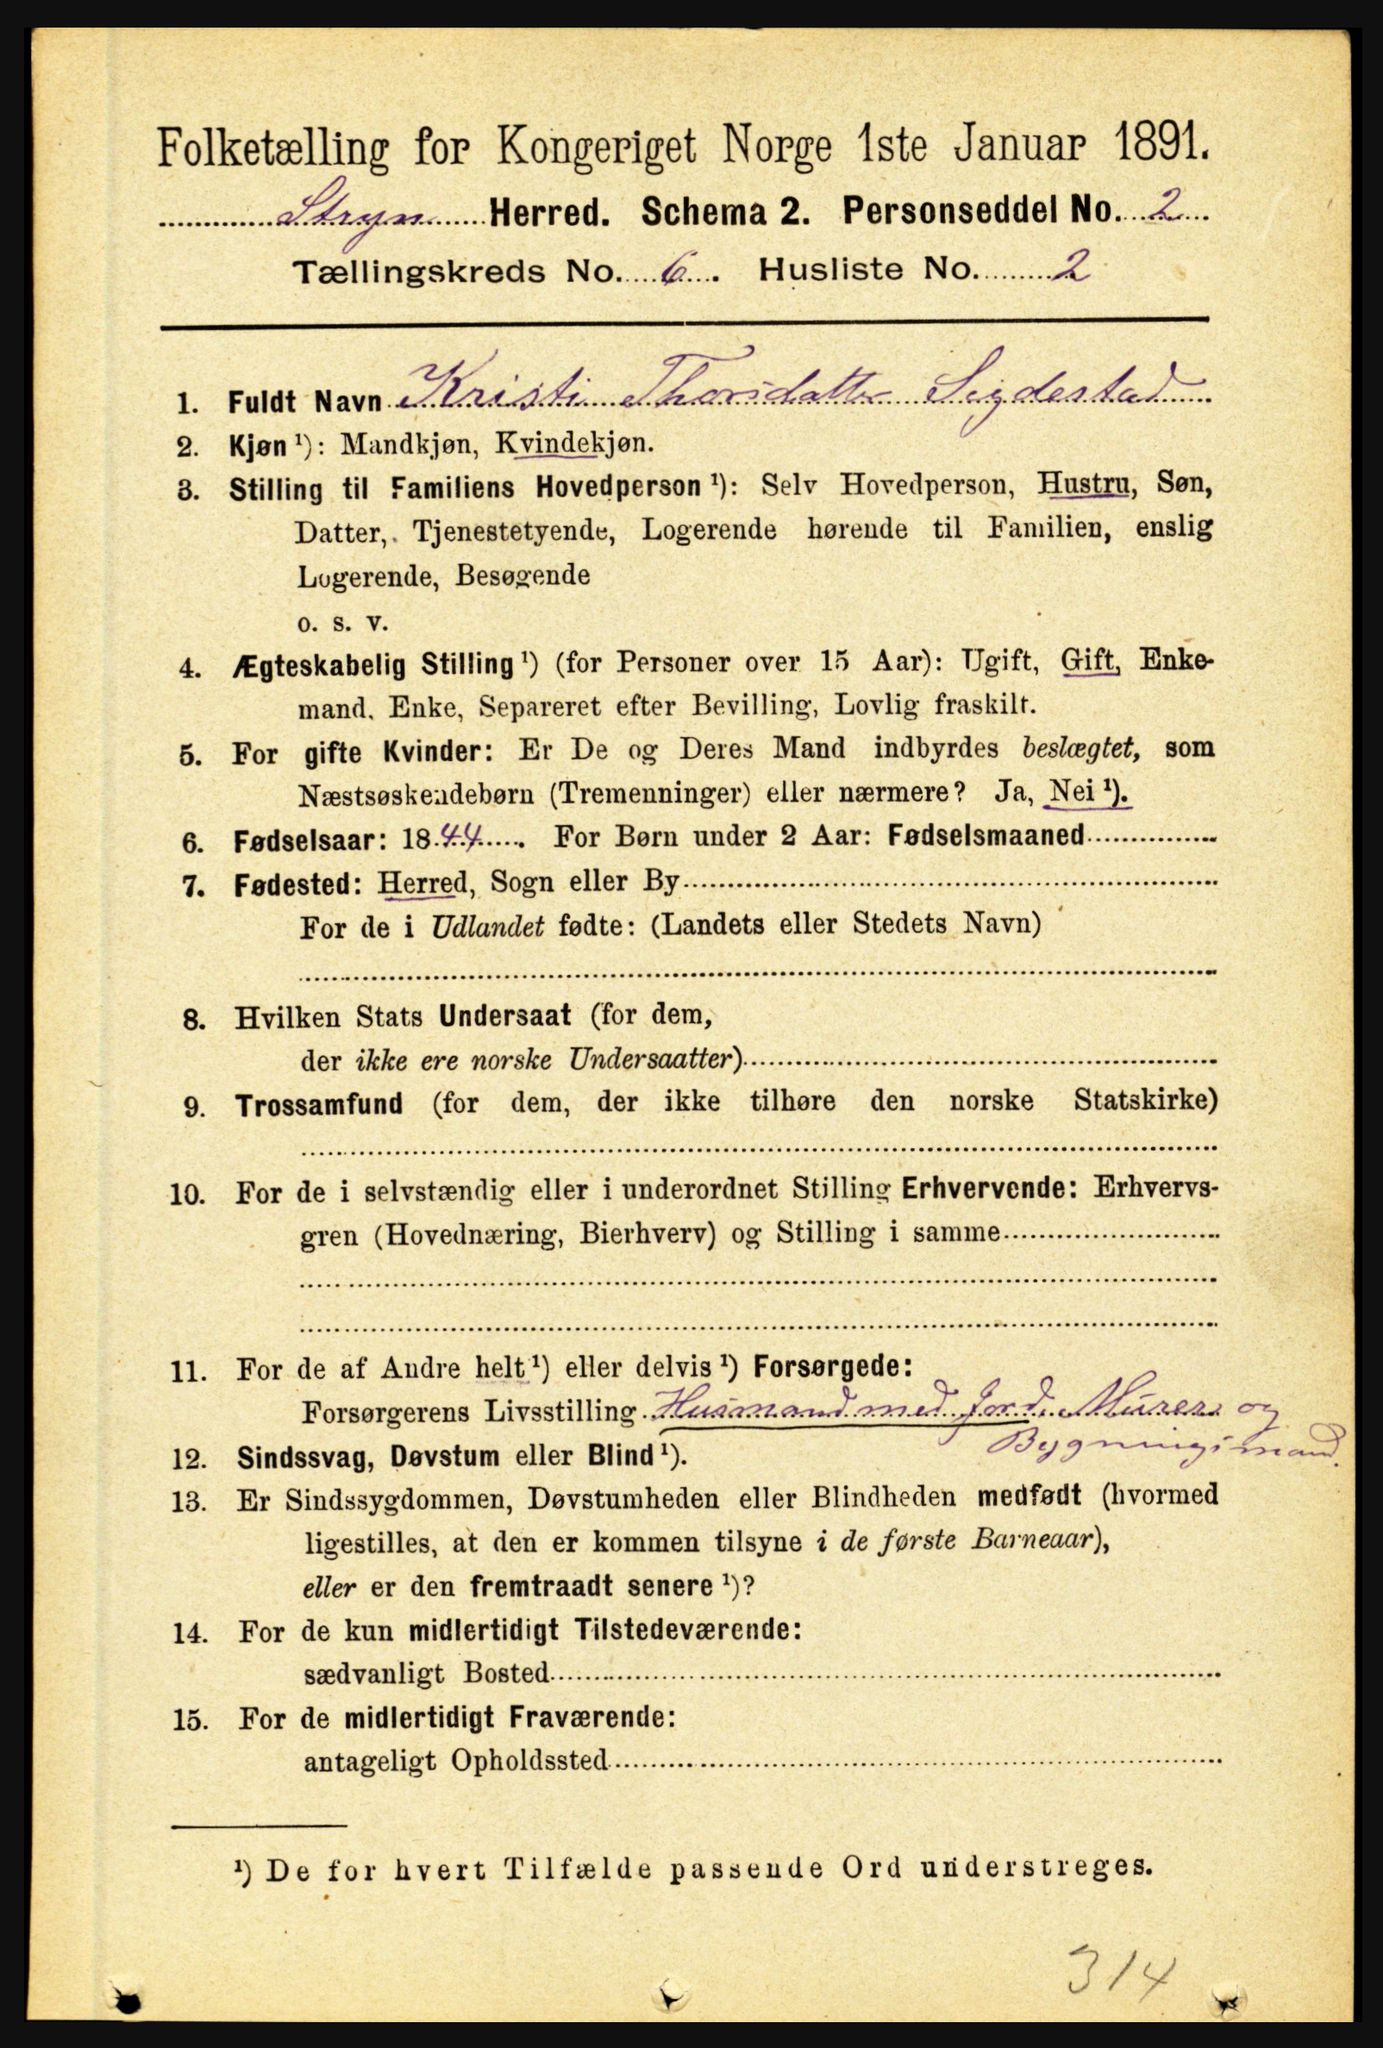 Folketælling for Kongeriget Norge 1ste Januar 1891.
Stryn Herred. Schema 2. Personseddel No. 2
Tællingskreds No. 6. Husliste No. 2
1. Fuldt Navn Kristi Thorsdatter Sigdestad
2. Kjøn ¹): Mandkjøn, Kvindekjøn.
3. Stilling til Familiens Hovedperson ¹): Selv Hovedperson, Hustru, Søn,
Datter, Tjenestetyende, Logerende hørende til Familien, enslig
Logerende, Besøgende
o. s. v.
4. Ægteskabelig Stilling ¹) (for Personer over 15 Aar): Ugift, Gift, Enke-
mand, Enke, Separeret efter Bevilling, Lovlig fraskilt.
5. For gifte Kvinder: Er De og Deres Mand indbyrdes beslægtet, som
Næstsøskendebørn (Tremenninger) eller nærmere? Ja, Nei ¹).
6. Fødselsaar: 1844. For Børn under 2 Aar: Fødselsmaaned
7. Fødested: Herred, Sogn eller By
For de i Udlandet fødte: (Landets eller Stedets Navn)
8. Hvilken Stats Undersaat (for dem,
der ikke ere norske Undersaatter)
9. Trossamfund (for dem, der ikke tilhøre den norske Statskirke)
10. For de i selvstændig eller i underordnet Stilling Erhvervende: Erhvervs-
gren (Hovednæring, Bierhverv) og Stilling i samme
11. For de af Andre helt ¹) eller delvis ¹) Forsørgede:
Forsørgerens Livsstilling Husmand med Jord. Murer og
Bygningsmand.
12. Sindssvag, Døvstum eller Blind ¹).
13. Er Sindssygdommen, Døvstumheden eller Blindheden medfødt (hvormed
ligestilles, at den er kommen tilsyne i de første Barneaar),
eller er den fremtraadt senere ¹)?
14. For de kun midlertidigt Tilstedeværende:
sædvanligt Bosted
15. For de midlertidigt Fraværende:
antageligt Opholdssted
¹) De for hvert Tilfælde passende Ord understreges.
314